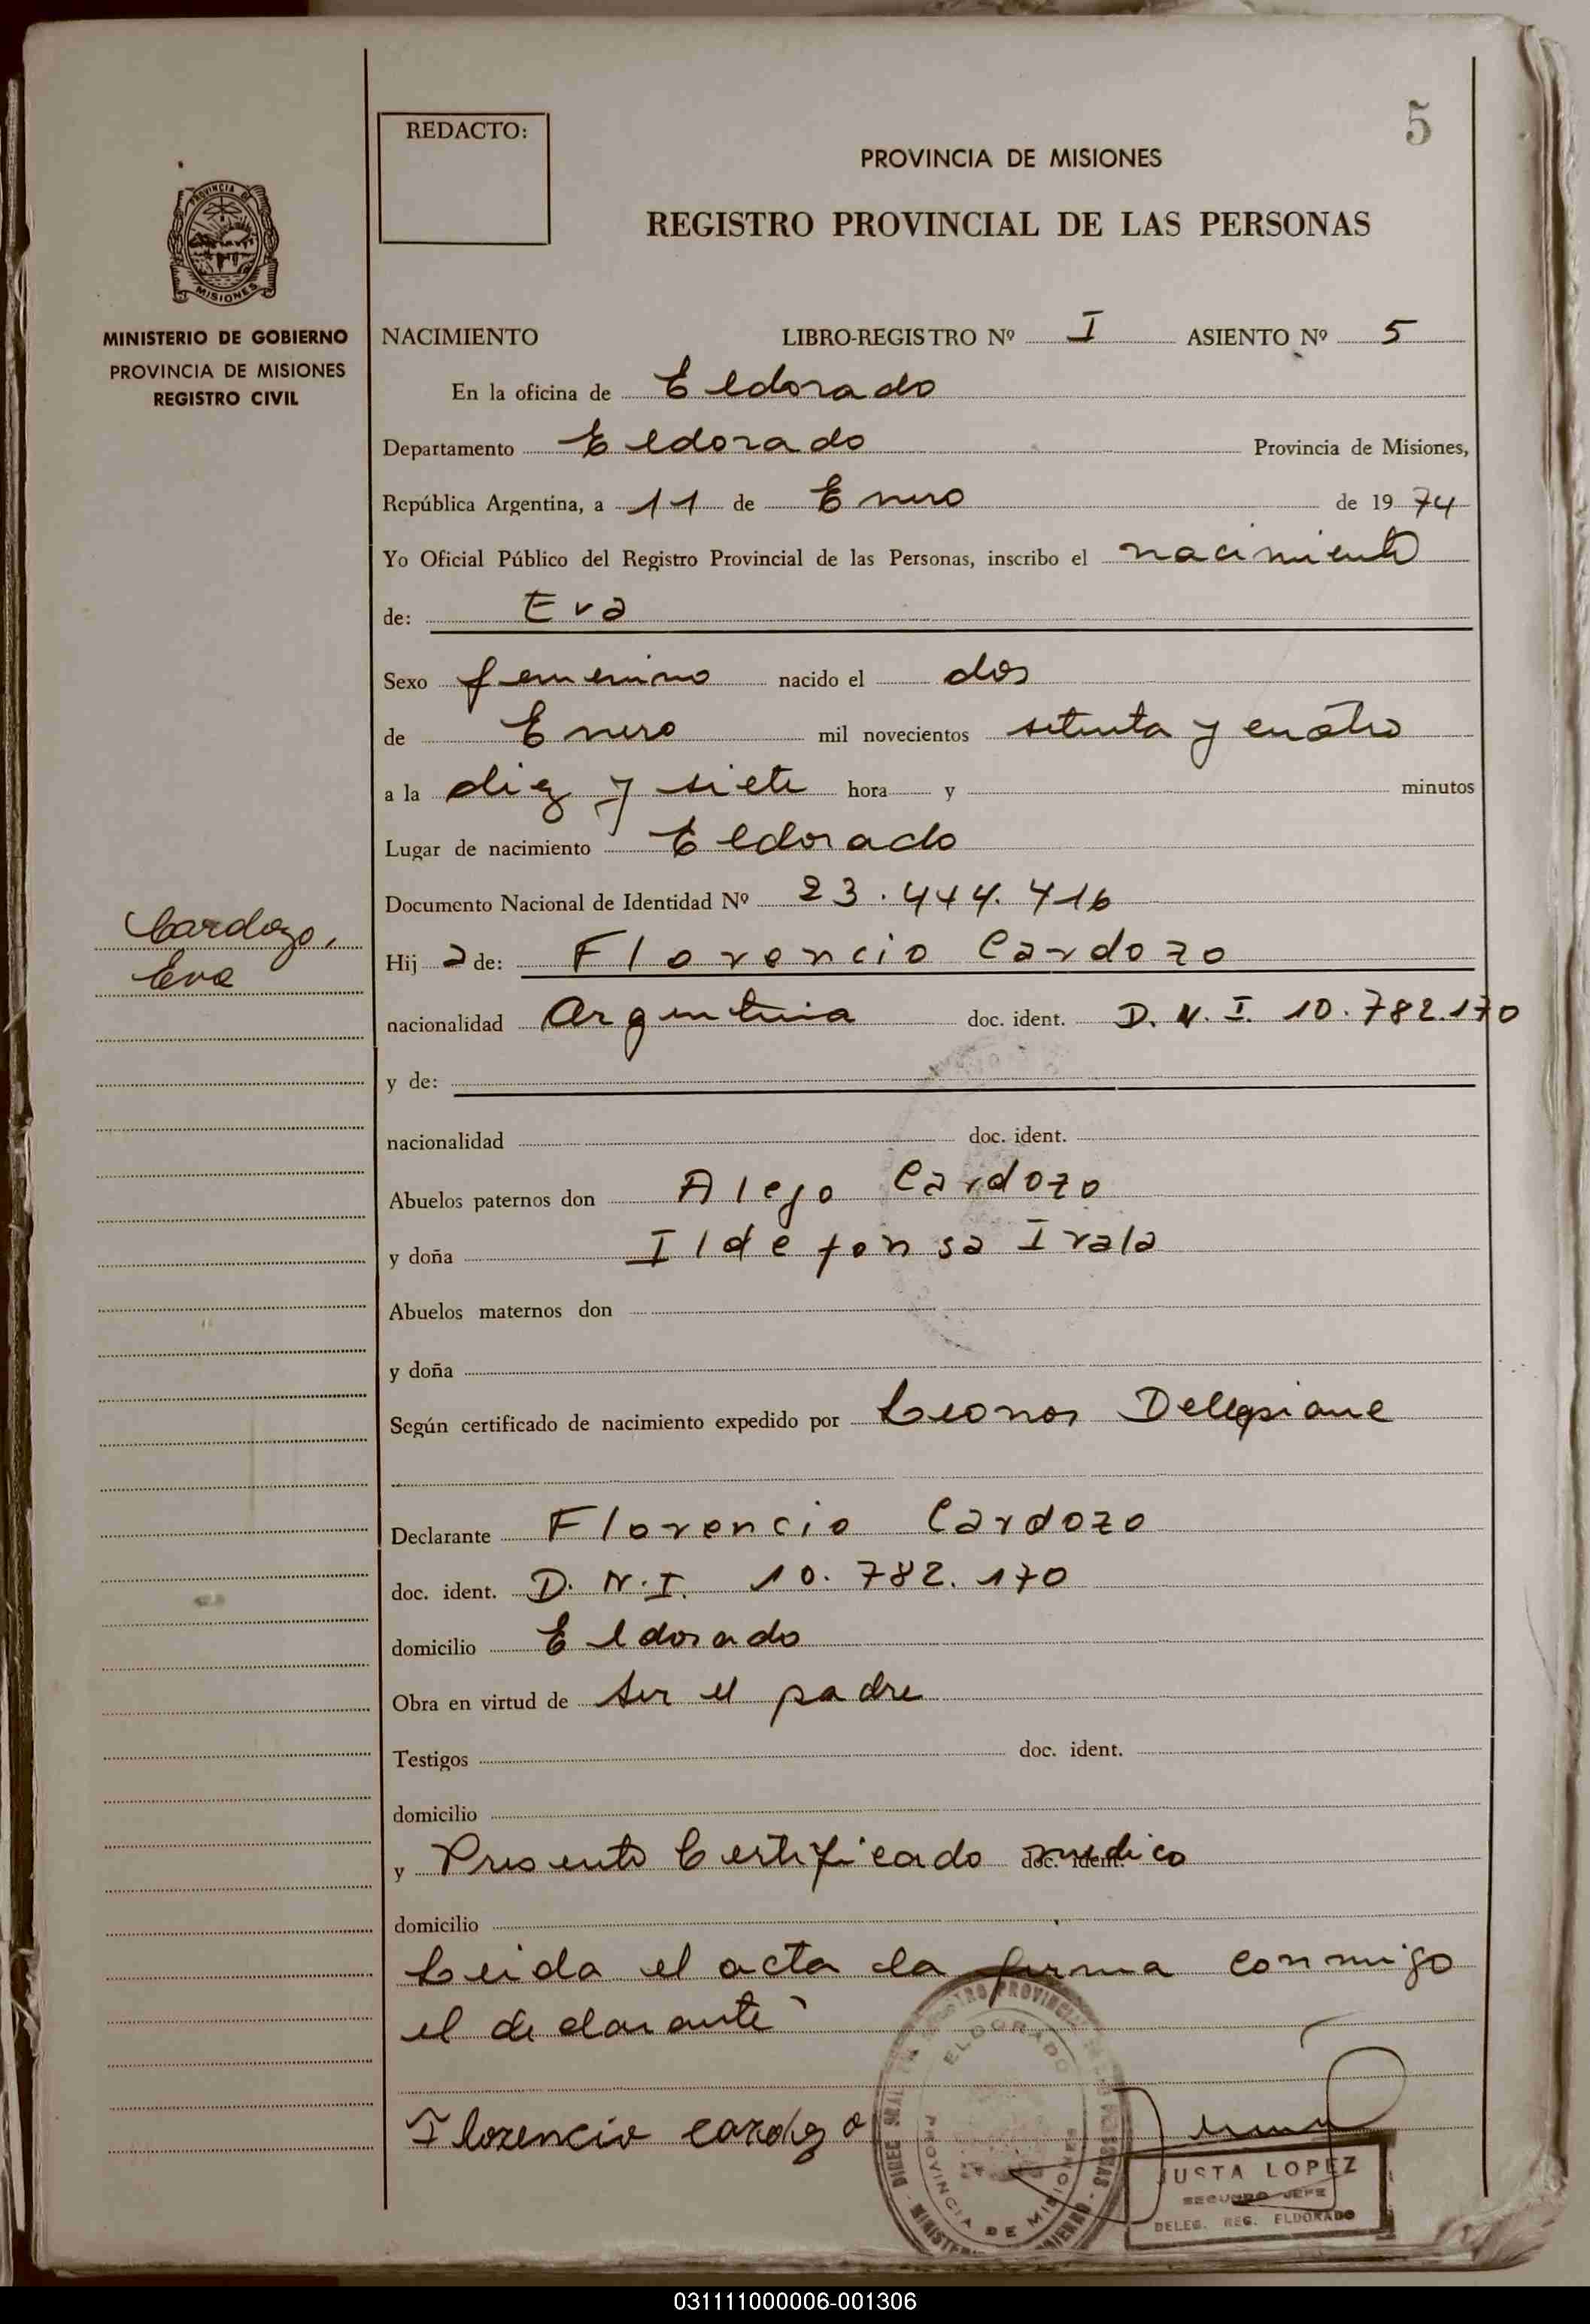 5
REDACTO:
PROVINCIA DE MISIONES
REGISTRO PROVINCIAL DE LAS PERSONAS
PROVINCIA DE
MISIONES
MINISTERIO DE GOBIERNO
PROVINCIA DE MISIONES
REGISTRO CIVIL
NACIMIENTO LIBRO-REGISTRO Nº I ASIENTO Nº 5
En la oficina de Eldorado
Departamento Eldorado Provincia de Misiones,
República Argentina, a 11 de Enero de 1974
Yo Oficial Público del Registro Provincial de las Personas, inscribo el nacimiento
de: Eva
Sexo femenino nacido el dos
de Enero mil novecientos setenta y cuatro
a la diez y siete hora y minutos
Lugar de nacimiento Eldorado
Documento Nacional de Identidad Nº 23.444.416
Cardozo,
Eva
Hija de: Florencio Cardozo
nacionalidad Argentina doc. ident. D.N.I. 10.782.170
y de:
nacionalidad doc. ident.
Abuelos paternos don Alejo Cardozo
y doña Ildefonsa Irala
Abuelos maternos don
y doña
Según certificado de nacimiento expedido por Leonor
Declarante Florencio Cardozo
doc. ident. D.N.I. 10.782.170
domicilio Eldorado
Obra en virtud de ser el padre
Testigos doc. ident.
domicilio
y Presento Certificado medico doc. ident.
domicilio
Leida el acta la firma conmigo
el declarante
Florencio cardozo
ELDORADO
PROVINCIA DE MISIONES
JUSTA LOPEZ
SEGUNDO JEFE
DELEG. REG. ELDORADO
031111000006-001306